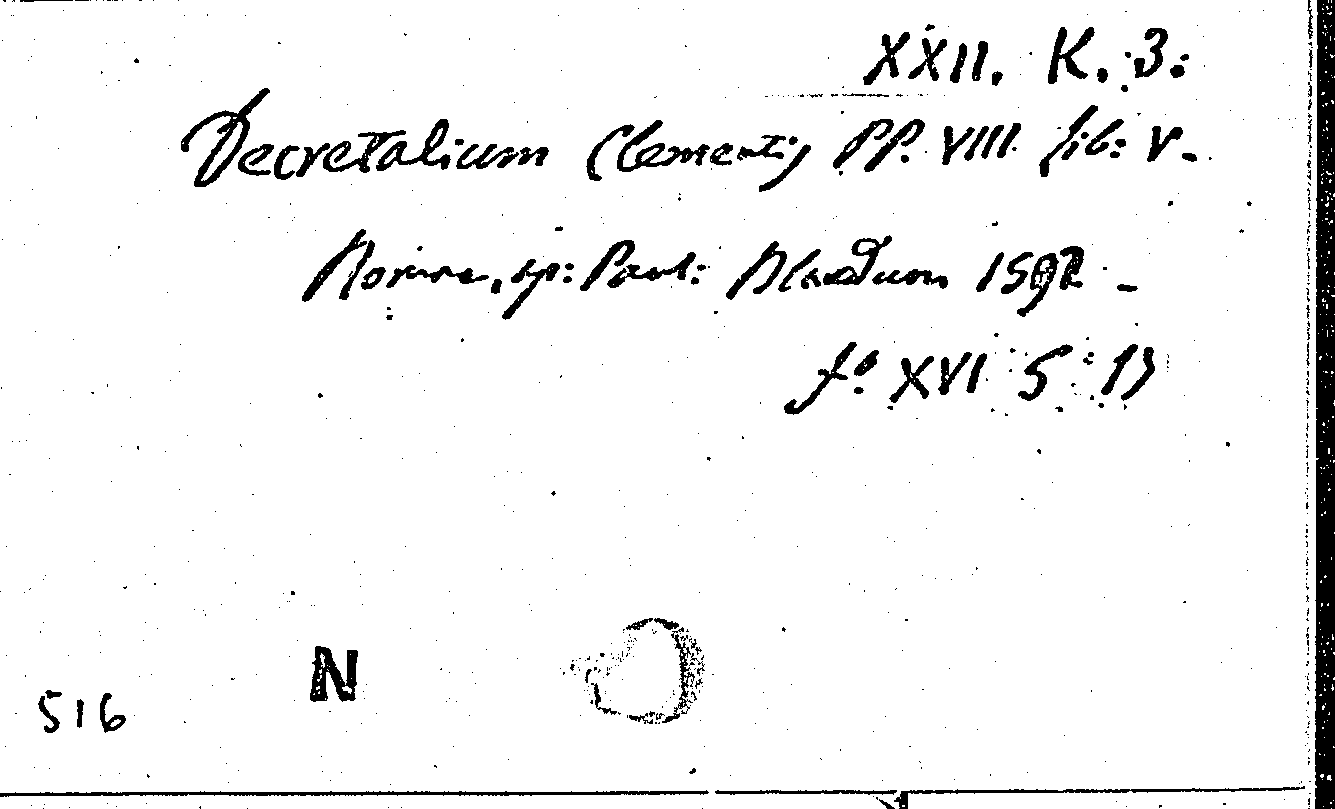 XXII. K. 3.
Decretalium Clementis PP. VIII lib: V.
Romae, ap: Paul: Bladum 1592 -
f° XVI S
516
N